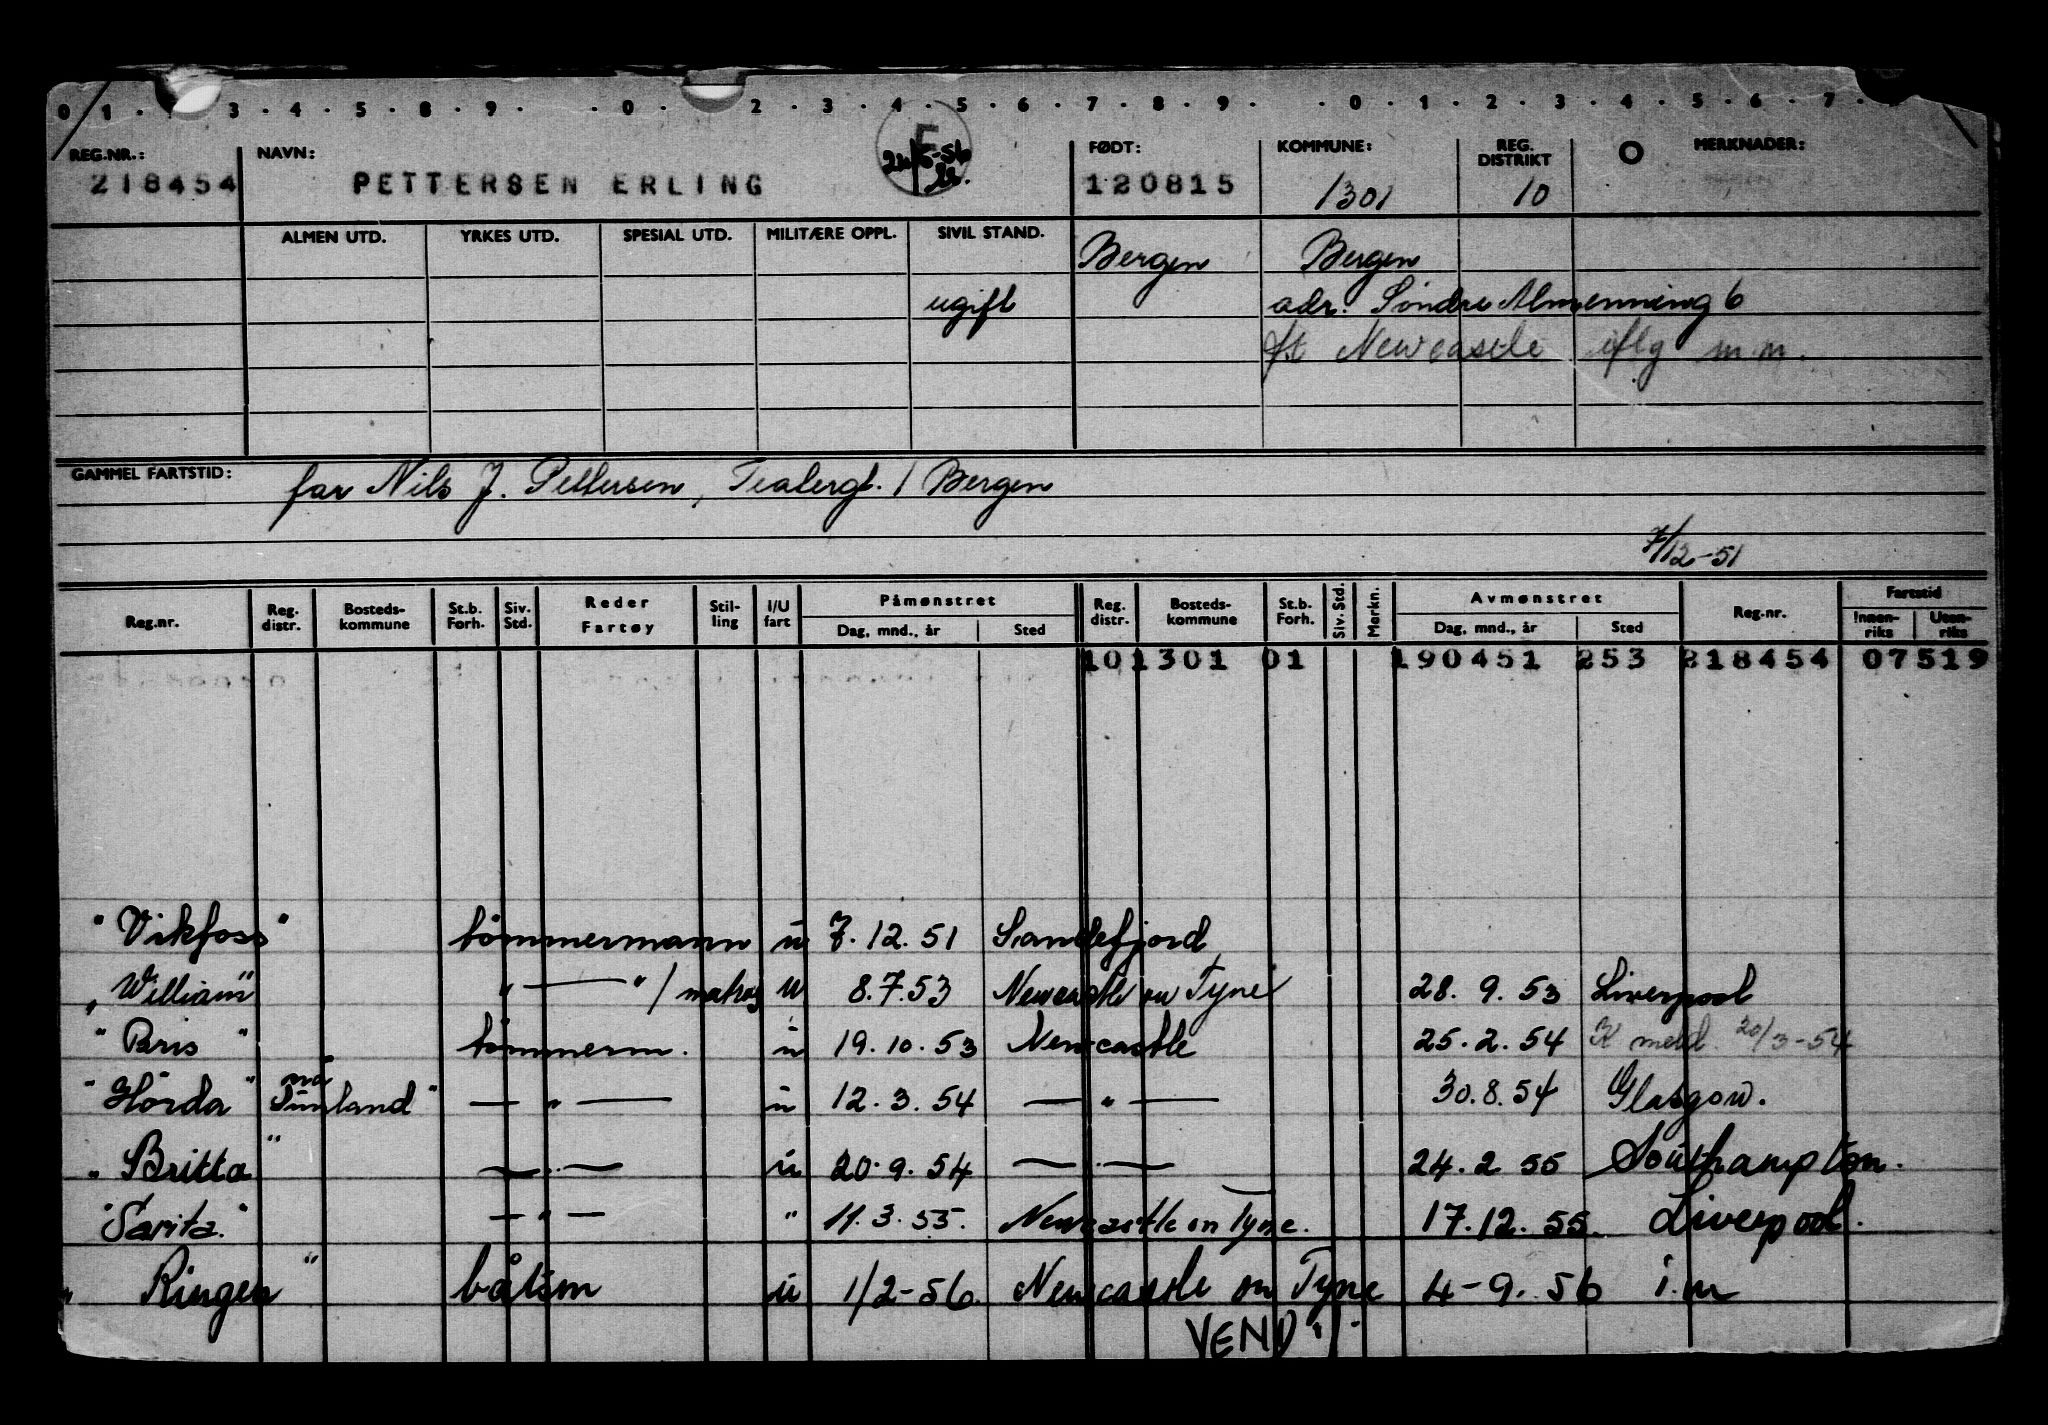 0 1 . . 3 . 4 . 5 . 8 . 9 . . 0 . . 2 . 3 . 4 . 5 . 6 . 7 . 8 . 9 . . 0 . 1 . 2 . 3 . 4 . 5 . 6 . 7 .
REG.NR.: NAVN: FØDT: KOMMUNE: REG. DISTRIKT O MERKNADER:
218454 PETTERSEN ERLING 120815 1301 10
ALMEN UTD. YRKES UTD. SPESIAL UTD. MILITÆRE OPPL. SIVIL STAND. Bergen Bergen
ugift adr. Söndre Almenning 6
ft Newcastle iflg m.m.
GAMMEL FARTSTID: far Nils J. Pettersen, Teatergt. 1 Bergen
7/12-51
Reg.nr. Reg. distr. Bosteds- kommune St.b. Forh. Siv. Std. Reder Fartøy Stil- ling I/U fart Påmønstret Dag, mnd., år Sted Reg. distr. Bosteds- kommune St.b. Forh. Siv. Std. Merkn. Avmønstret Dag, mnd., år Sted Reg.nr. Fartstid Innen- riks Uten- riks
10 1301 01 190451 253 218454 07519
"Vikfoss" tömmermann u 7.12.51 Sandefjord
"William" — " — / matros u 8.7.53 Newcastle on Tyne 28.9.53 Liverpool
"Bris" tömmerm. u 19.10.53 Newcastle 25.2.54 K meld. 20/3-54
"Hörda" nå "Sunland" — " — u 12.3.54 — " — 30.8.54 Glasgow.
"Britta" — " — u 20.9.54 — " — 24.2 55 Southampton.
"Sarita." — " — " 11.3.55. Newcastle on Tyne. 17.12.55. Liverpool.
"Ringen" båtsm u 1/2-56. Newcastle on Tyne 4-9.56 i.m
VEND!